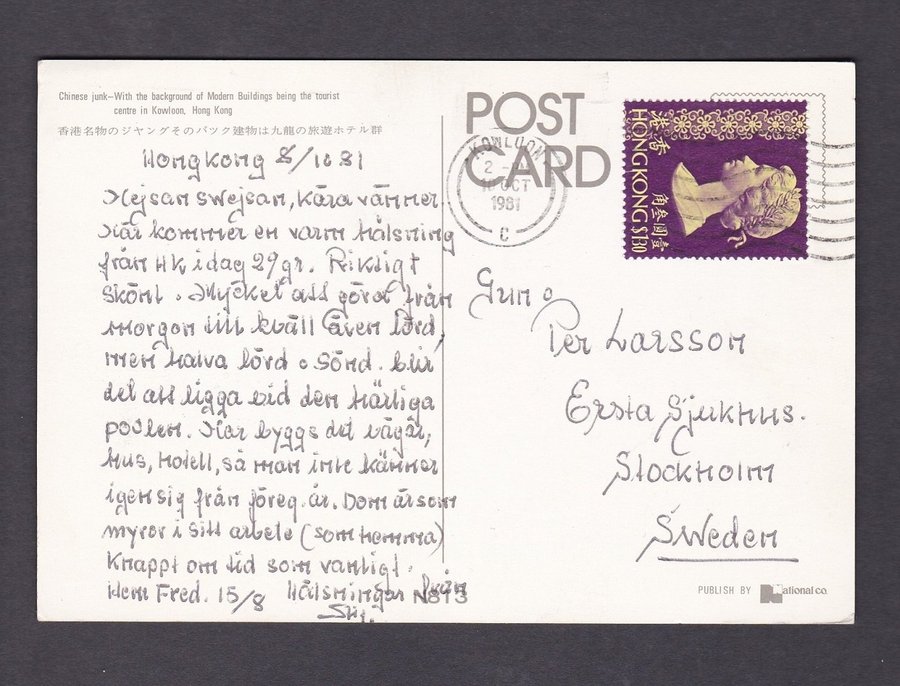 Chinese junk—With the background of Modern Buildings being the tourist
centre in Kowloon, Hong Kong
香港名物のジヤングそのバツク建物は九龍の旅遊ホテル群
POST
CARD
KOWLOON
OCT
1981
C
香港
HONG KONG $1.30
壹圓叁角
Hongkong 8/10 81
Hejsan svejsan, Kära vänner.
Här kommer en varm hälsning
från HK idag 29gr. Riktigt
skönt. Mycket att göra från
morgon till kväll även lörd,
men halva lörd o sönd. blir
det att ligga vid den härliga
poolen. Här byggs det vägar,
hus, hotell, så man inte känner
igen sig från föreg. år. Dom är som
myror i sitt arbete (som hemma)
Knappt om tid som vanligt.
Hem Fred. 15/8 Hälsningar från
N813
Gun o
Per Larsson
Ersta Sjukhus.
Stockholm
Sweden
PUBLISH BY National co.